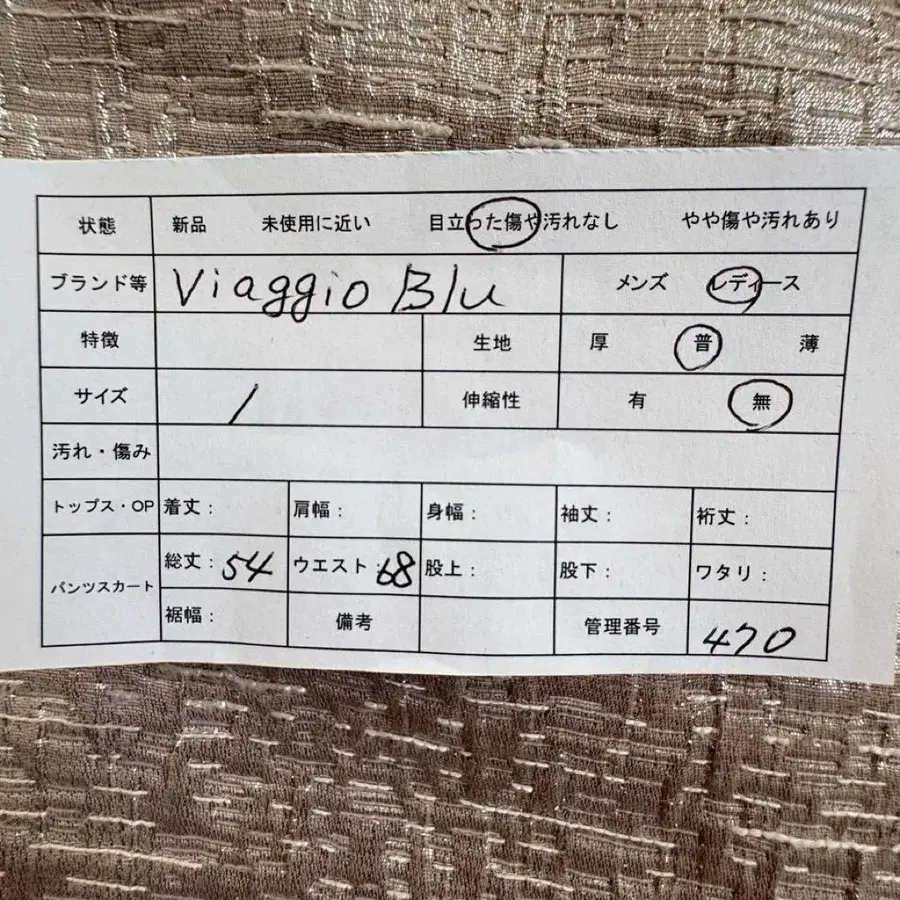 状態 新品 未使用に近い 目立った傷や汚れなし やや傷や汚れあり
ブランド等 Viaggio Blu メンズ レディース
特徴 生地 厚 普 薄
サイズ 1 伸縮性 有 無
汚れ・傷み
トップス・OP 着丈： 肩幅： 身幅： 袖丈： 裄丈：
パンツスカート 総丈：54 ウエスト：68 股上： 股下： ワタリ：
裾幅： 備考 管理番号 470